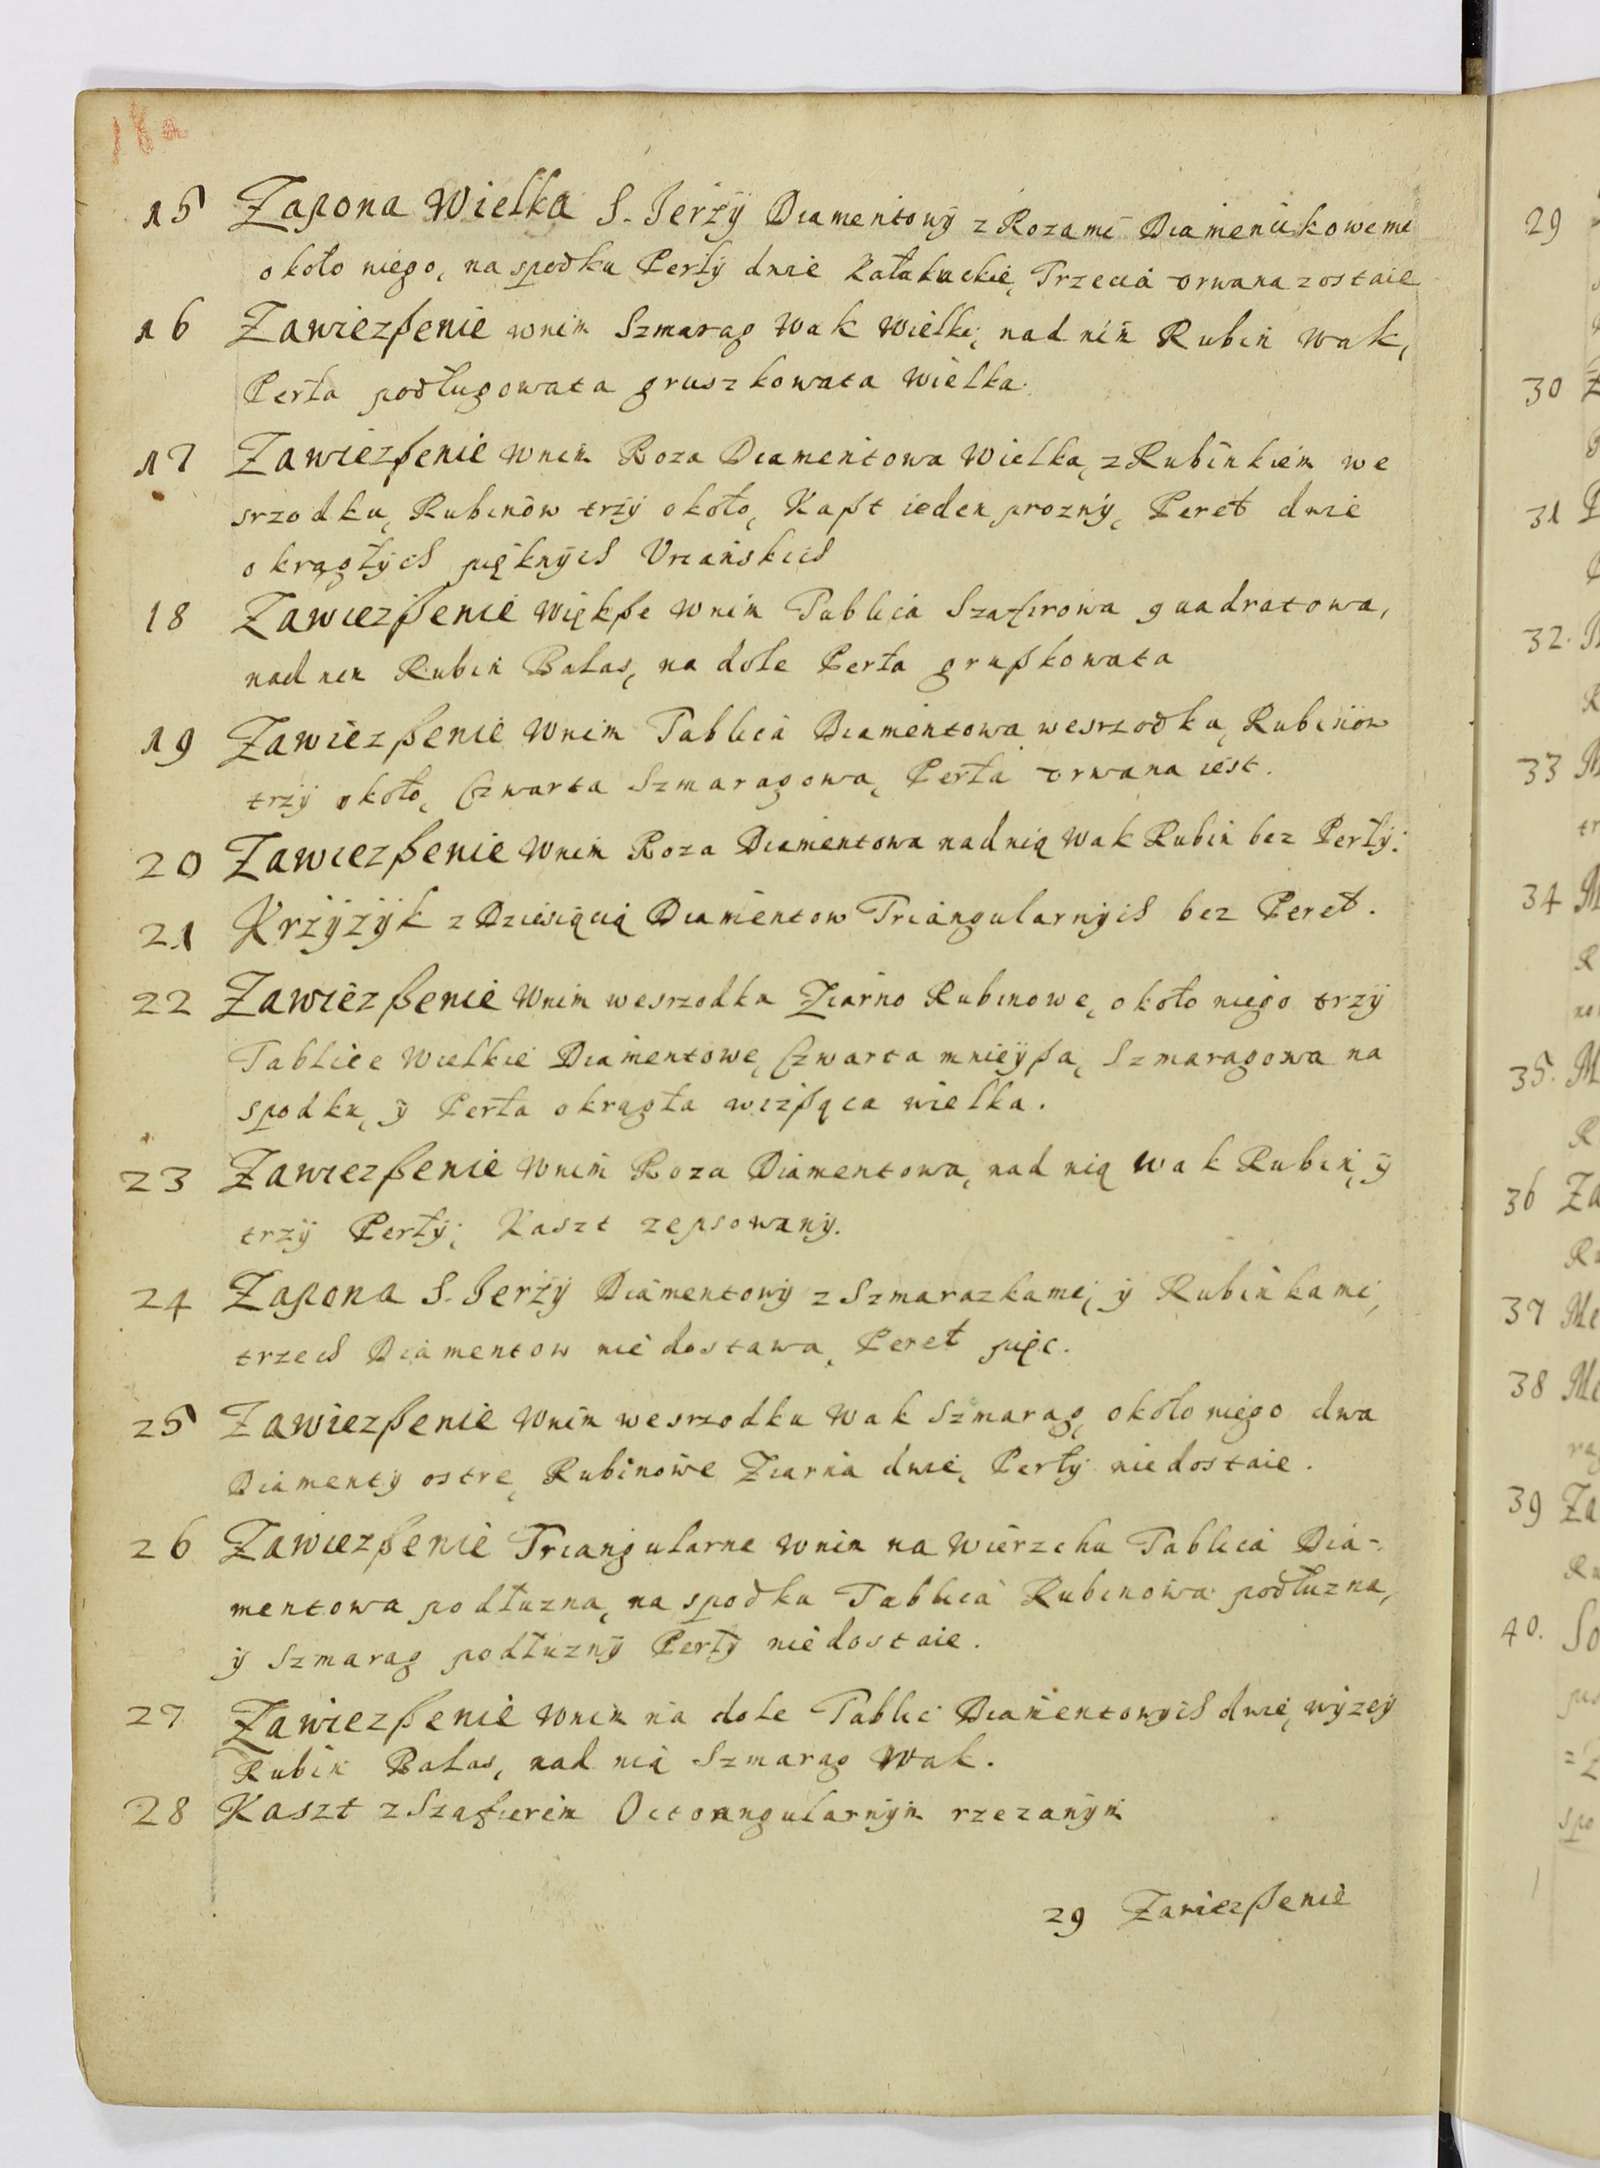 18a
15 Zapona Wielka S. Jerzÿ Diamentowÿ z Rozami Diamencikowemi
około niego, na spodku Perłÿ dwie Kałakuckie, Trzecia orwana zostaie
16 Zawiezßenie wnim Szmarag Wak Wielki, nad nim Rubin Wak,
Perła podługowata gruszkowata Wielka.
17 Zawiezßenie Wnim Roza Diamentowa Wielka, z Rubinkiem we
srzodku, Rubinow trzÿ około, Kaßt ieden prozny, Pereł dwie
okrągłÿch pięknÿch Uriańskich
18 Zawiezßenie Więkße Wnim Tablica Szafirowa quadratowa,
nad nim Rubin Balas, na dole Perła grußkowata
19 Zawiezßenie Wnim Tablica Diamentowa wesrzodku, Rubinow
trzÿ około, Czwarta Szmaragowa, Perła orwana iest.
20 Zawiezßenie Wnim Roza Diamentowa nad nią Wak Rubin bez Perłÿ.
21 Krzÿzÿk z Dziesiącią Diamentow Triangularnÿch bez Pereł.
22 Zawiezßenie Wnim wesrzodku Ziarno Rubinowe, około niego trzÿ
Tablice Wielkie Diamentowe, Czwarta mnieÿßa, Szmaragowa na
spodku, ÿ Perła okrągła wizßąca wielka.
23 Zawiezßenie Wnim Roza Diamentowa, nad nią Wak Rubin, ÿ
trzÿ Perłÿ, Kaszt zepsowanÿ.
24 Zapona S. Jerzÿ Diamentowÿ z Szmarazkami, ÿ Rubinkami,
trzech Diamentow nie dostawa, Pereł pięc.
25 Zawiezßenie Wnim wesrzodku Wak Szmarag, około niego dwa
Diamentÿ ostre, Rubinowe Ziarna dwie, Perłÿ niedostaie.
26 Zawiezßenie Triangularne Wnim na Wierzchu Tablica Dia-
mentowa podłuzna, na spodku Tablica Rubinowa podłuzna,
ÿ Szmarag podłuznÿ Perłÿ niedostaie.
27 Zawiezßenie Wnim na dole Tablic Diamentowÿch dwie, wÿzeÿ
Rubin Balas, nad nią Szmarag Wak.
28 Kaszt z Szafirem Octoangularnÿm rzezanÿm
29 Zawiezßenie
29
30
31
32.
33
34
35.
36 Za
37 Me
38
39 Za
40. So
spo